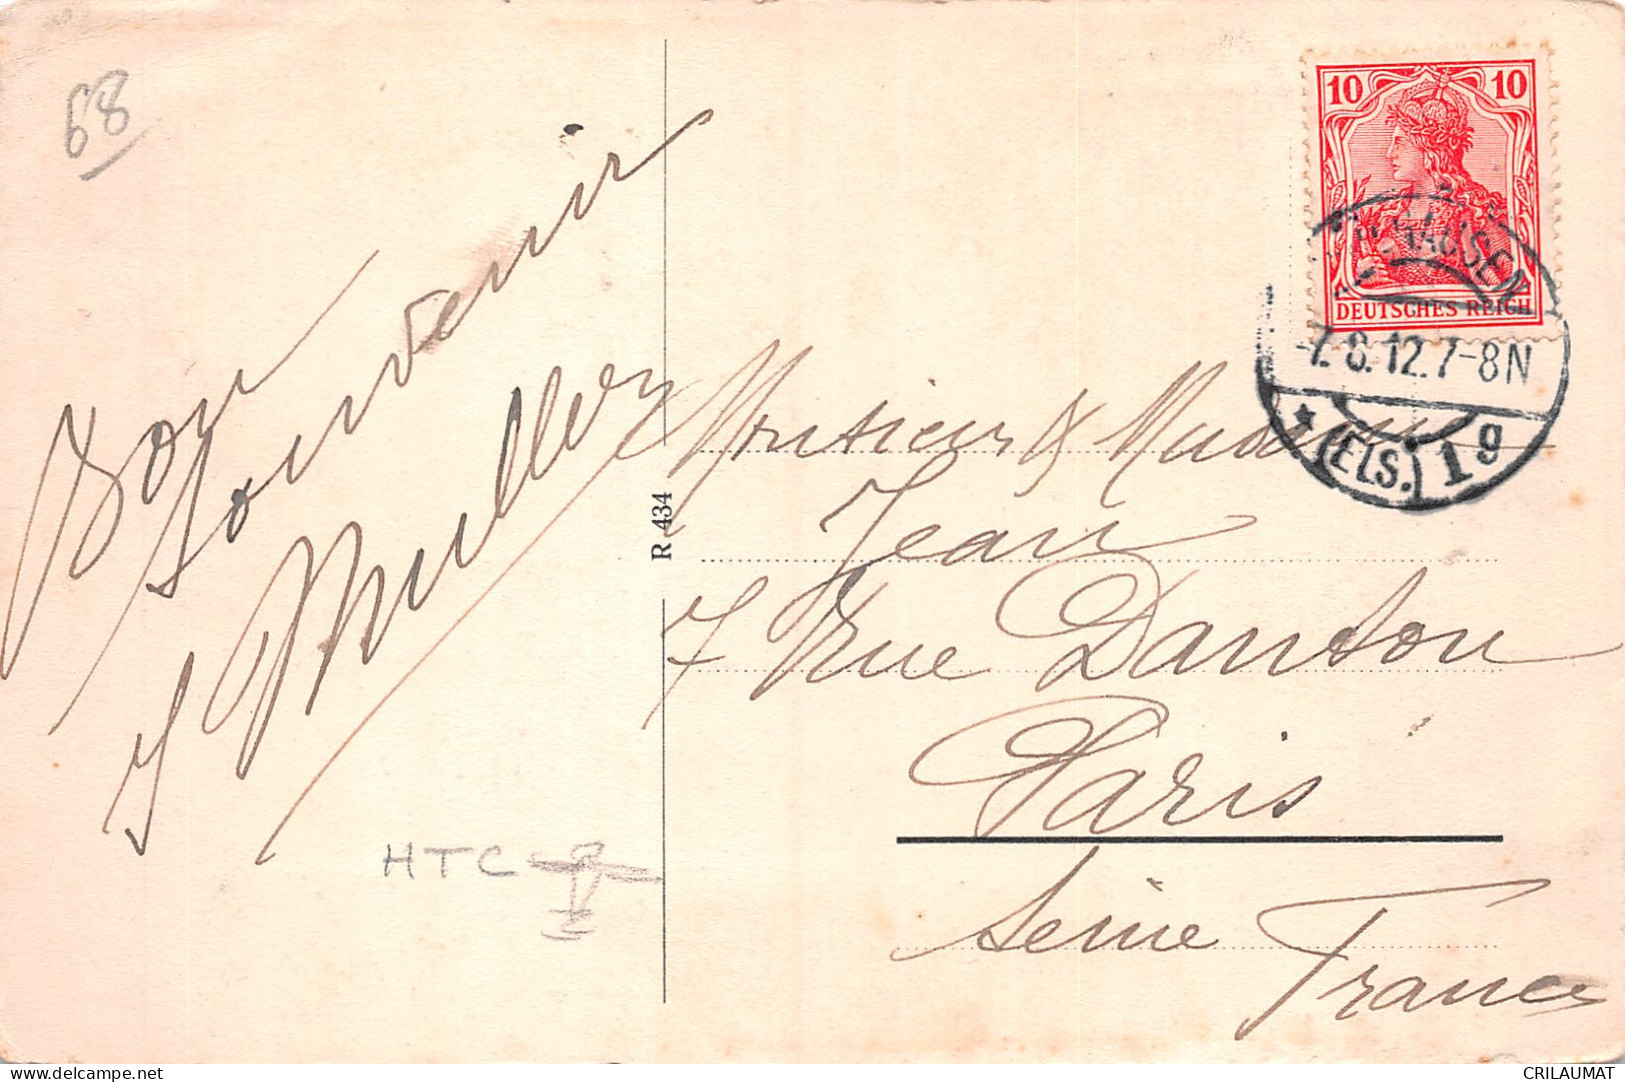 68
Bon
Souvenir
J Muller
HTC
R 434
10 10
DEUTSCHES REICH
HAUSEN
-7.8.12.7-8N
* (ELS.) 1g
Monsieur & Madame
Jean
7 Rue Danton
Paris
Seine
France
delcampe.net
CRILAUMAT